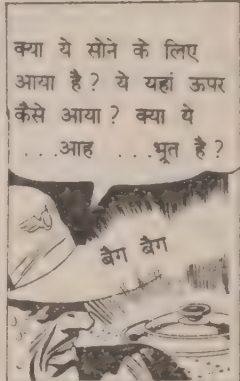 क्या ये सोने के लिए
आया है? ये यहां ऊपर
कैसे आया? क्या ये
...आह ...भूत है?
बैग बैग